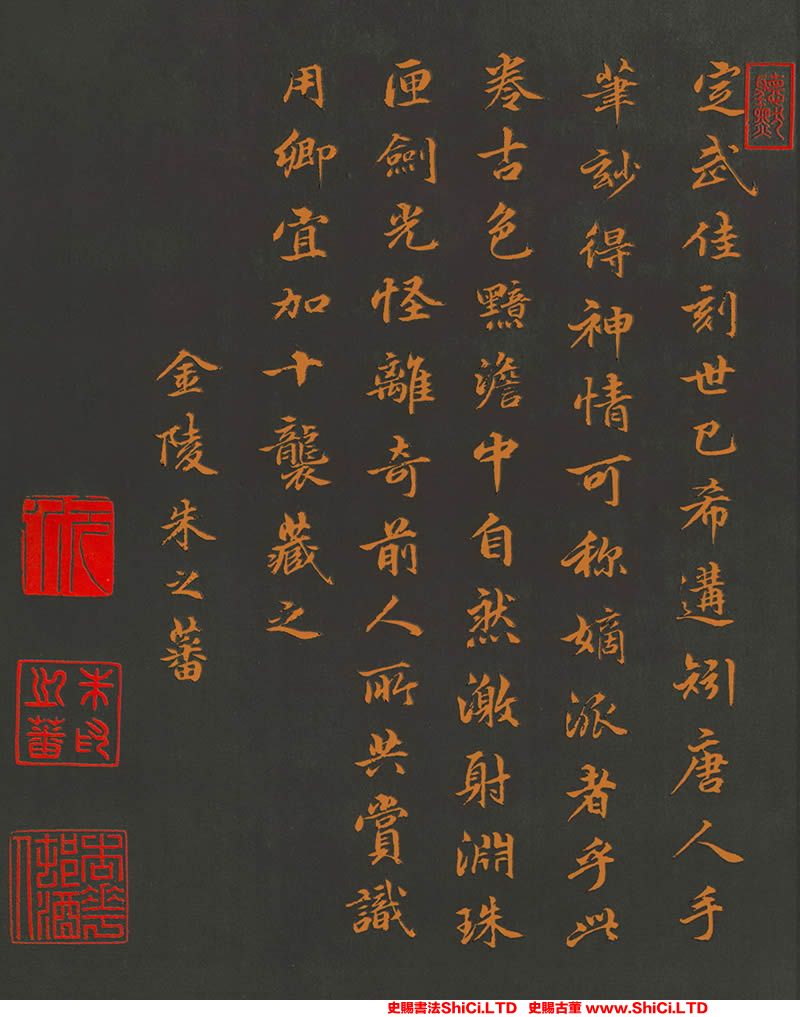 定武佳刻世已希遘矧唐人手
筆玅得神情可称嫡派者乎此
卷古色黯澹中自然激射淵珠
匣劍光怪離奇前人所共賞識
用卿宜加十襲藏之
金陵朱之蕃
朱氏之蕃
史賜書法ShiCi.LTD 史賜古董 www.ShiCi.LTD